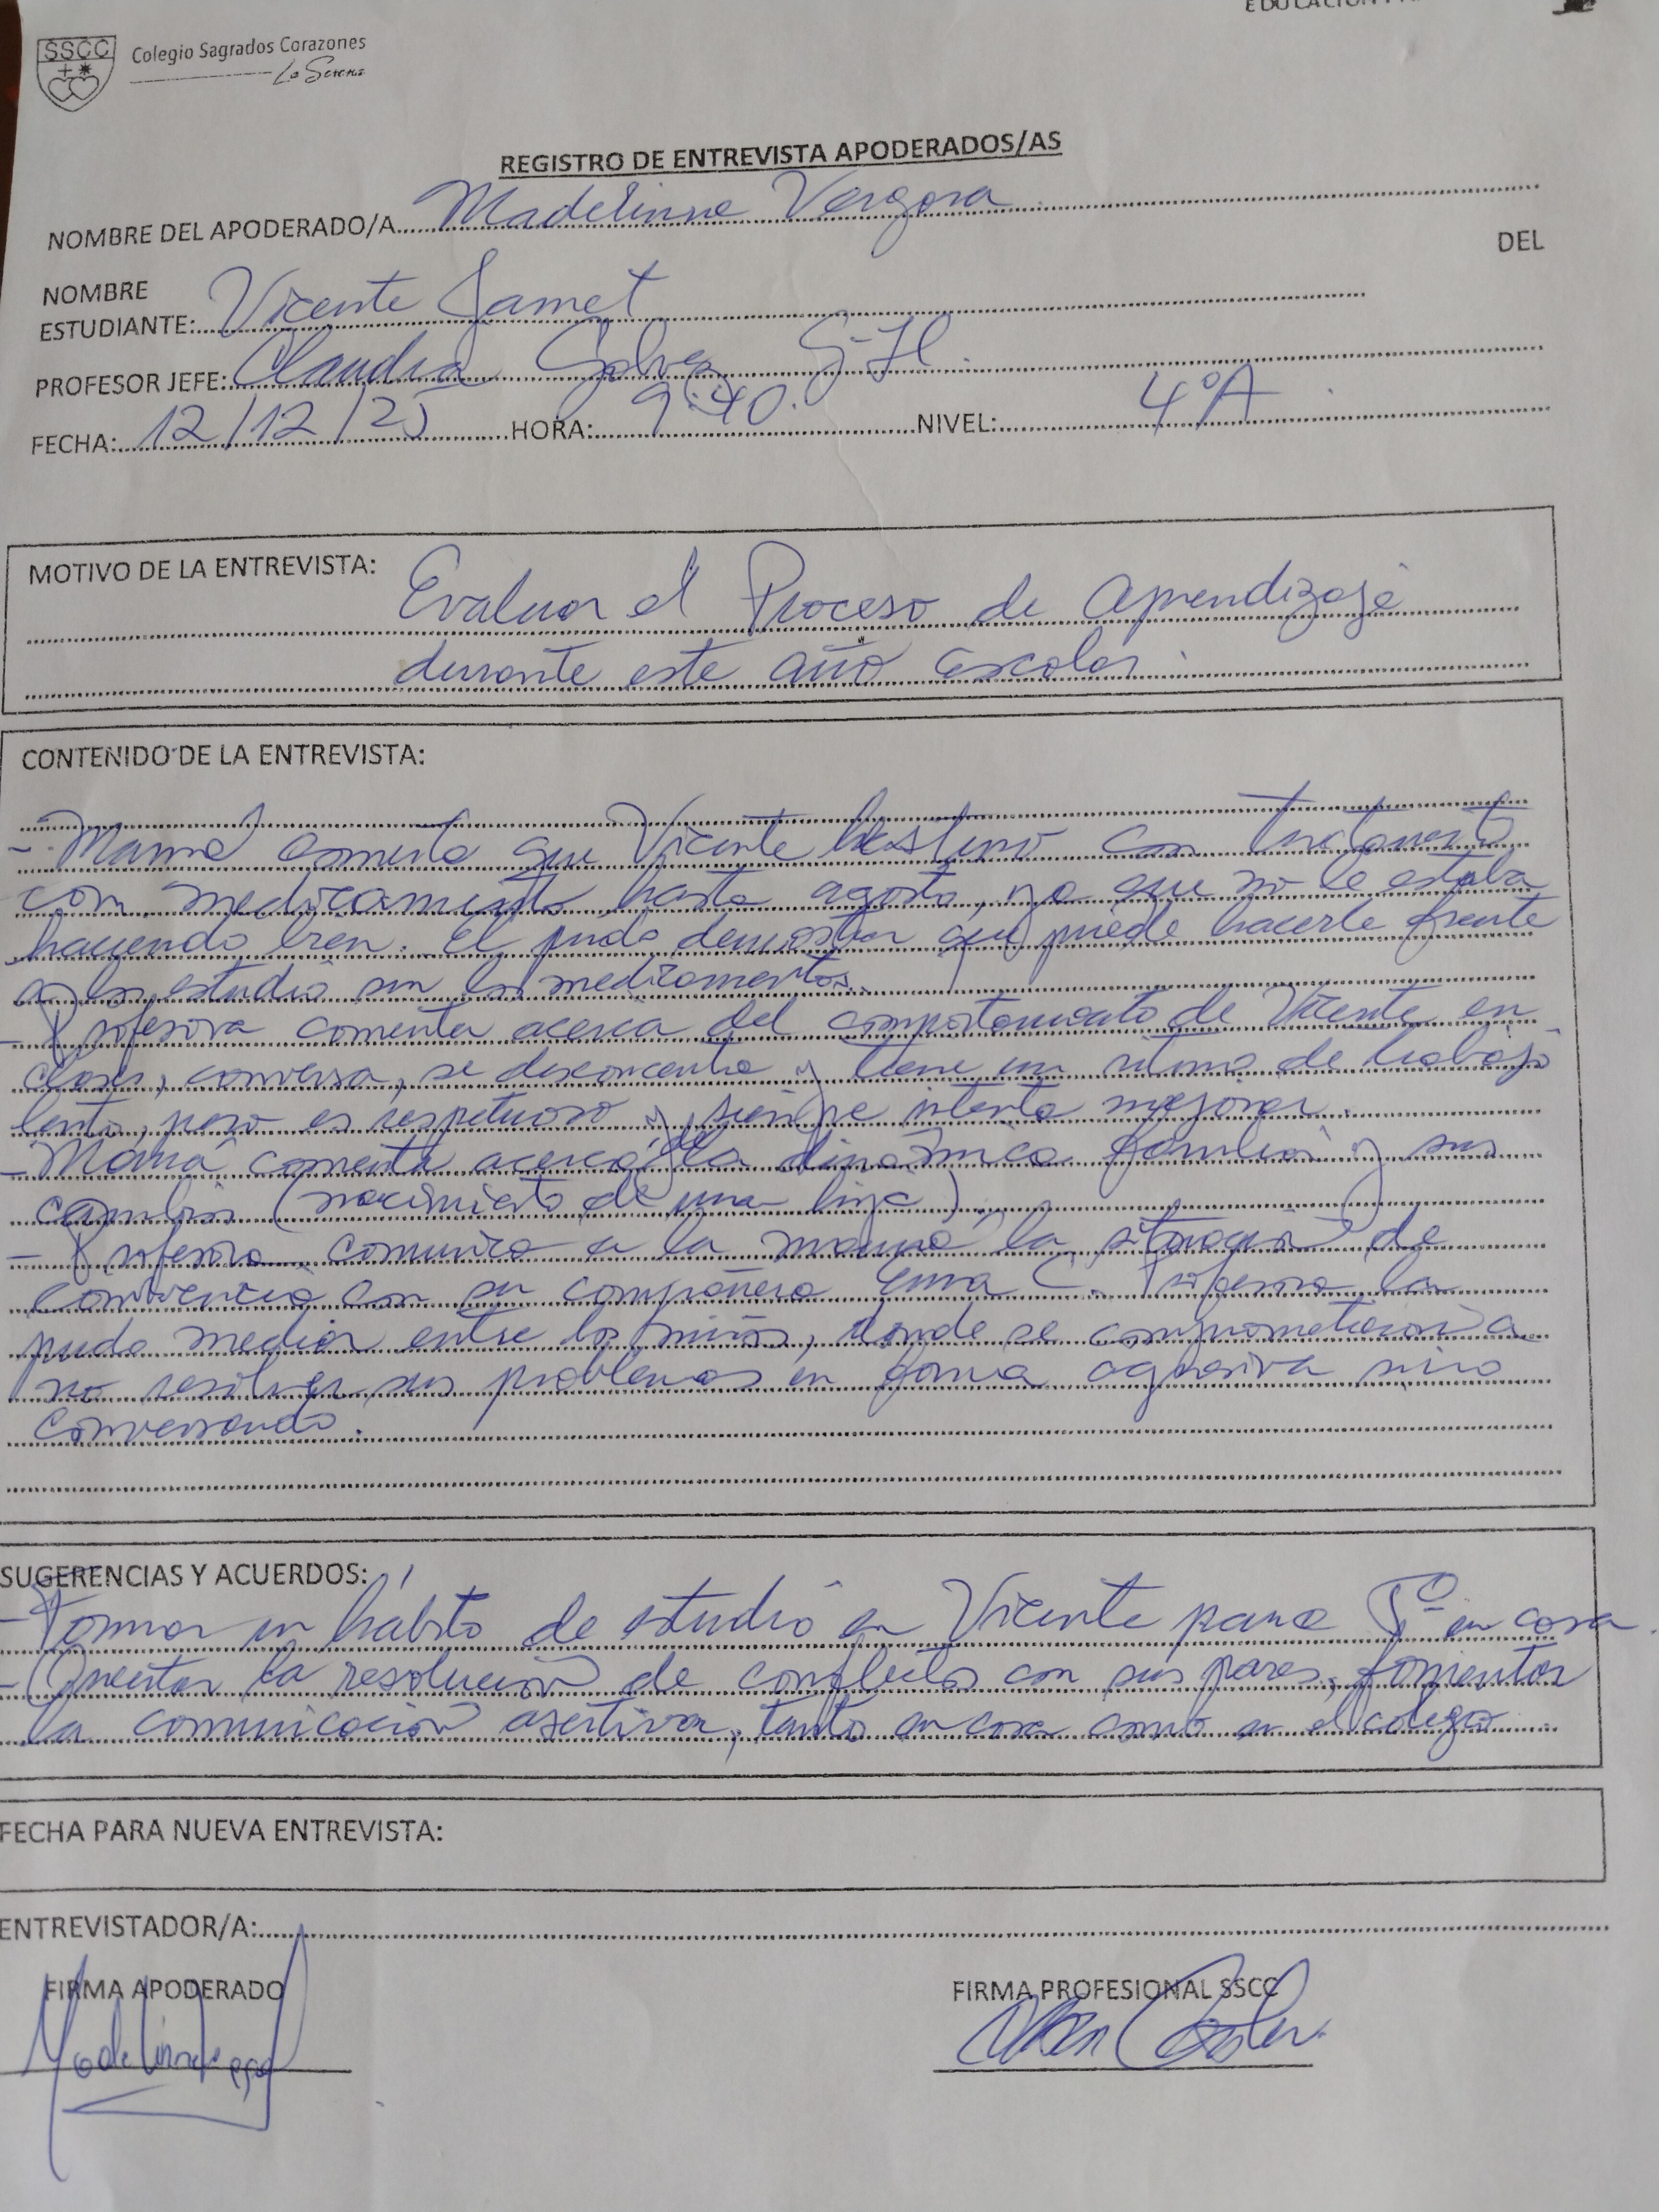 SSCC Colegio Sagrados Corazones
La Serena
REGISTRO DE ENTREVISTA APODERADOS/AS
NOMBRE DEL APODERADO/A Madelinne Vergara
DEL
NOMBRE
ESTUDIANTE: Vicente Jamet
PROFESOR JEFE: Claudia G-H.
FECHA: 12/12/25 HORA: 9:40. NIVEL: 4°A
MOTIVO DE LA ENTREVISTA: Evaluar el Proceso de Aprendizaje
durante este año escolar.
CONTENIDO DE LA ENTREVISTA:
- Mamá comenta que Vicente con tratamiento
con medicamento hasta agosto, ya que no le estaba
haciendo bien. El pudo demostrar que puede hacerle frente
a los estudio sin los medicamentos.
- Profesora comenta acerca del comportamiento de Vicente en
clases, conversa, se desconcentra y tiene un ritmo de trabajo
lento, pero es respetuoso y siempre intenta mejorar.
- Mamá comenta acerca de la dinámica familiar y sus
cambios (nacimiento de una hija).
- Profesora comunica a la mamá la situación de
convivencia con su compañera Ema C. Profesora la
pudo mediar entre los niños, donde se comprometieron a
no resolver sus problemas en forma agresiva sino
conversando.
SUGERENCIAS Y ACUERDOS:
- Formar un hábito de estudio en Vicente para 5° en casa.
- Orientar la resolución de conflictos con sus pares, fomentar
la comunicación asertiva, tanto en casa como en el colegio.
FECHA PARA NUEVA ENTREVISTA:
ENTREVISTADOR/A:
FIRMA APODERADO
FIRMA PROFESIONAL SSCC